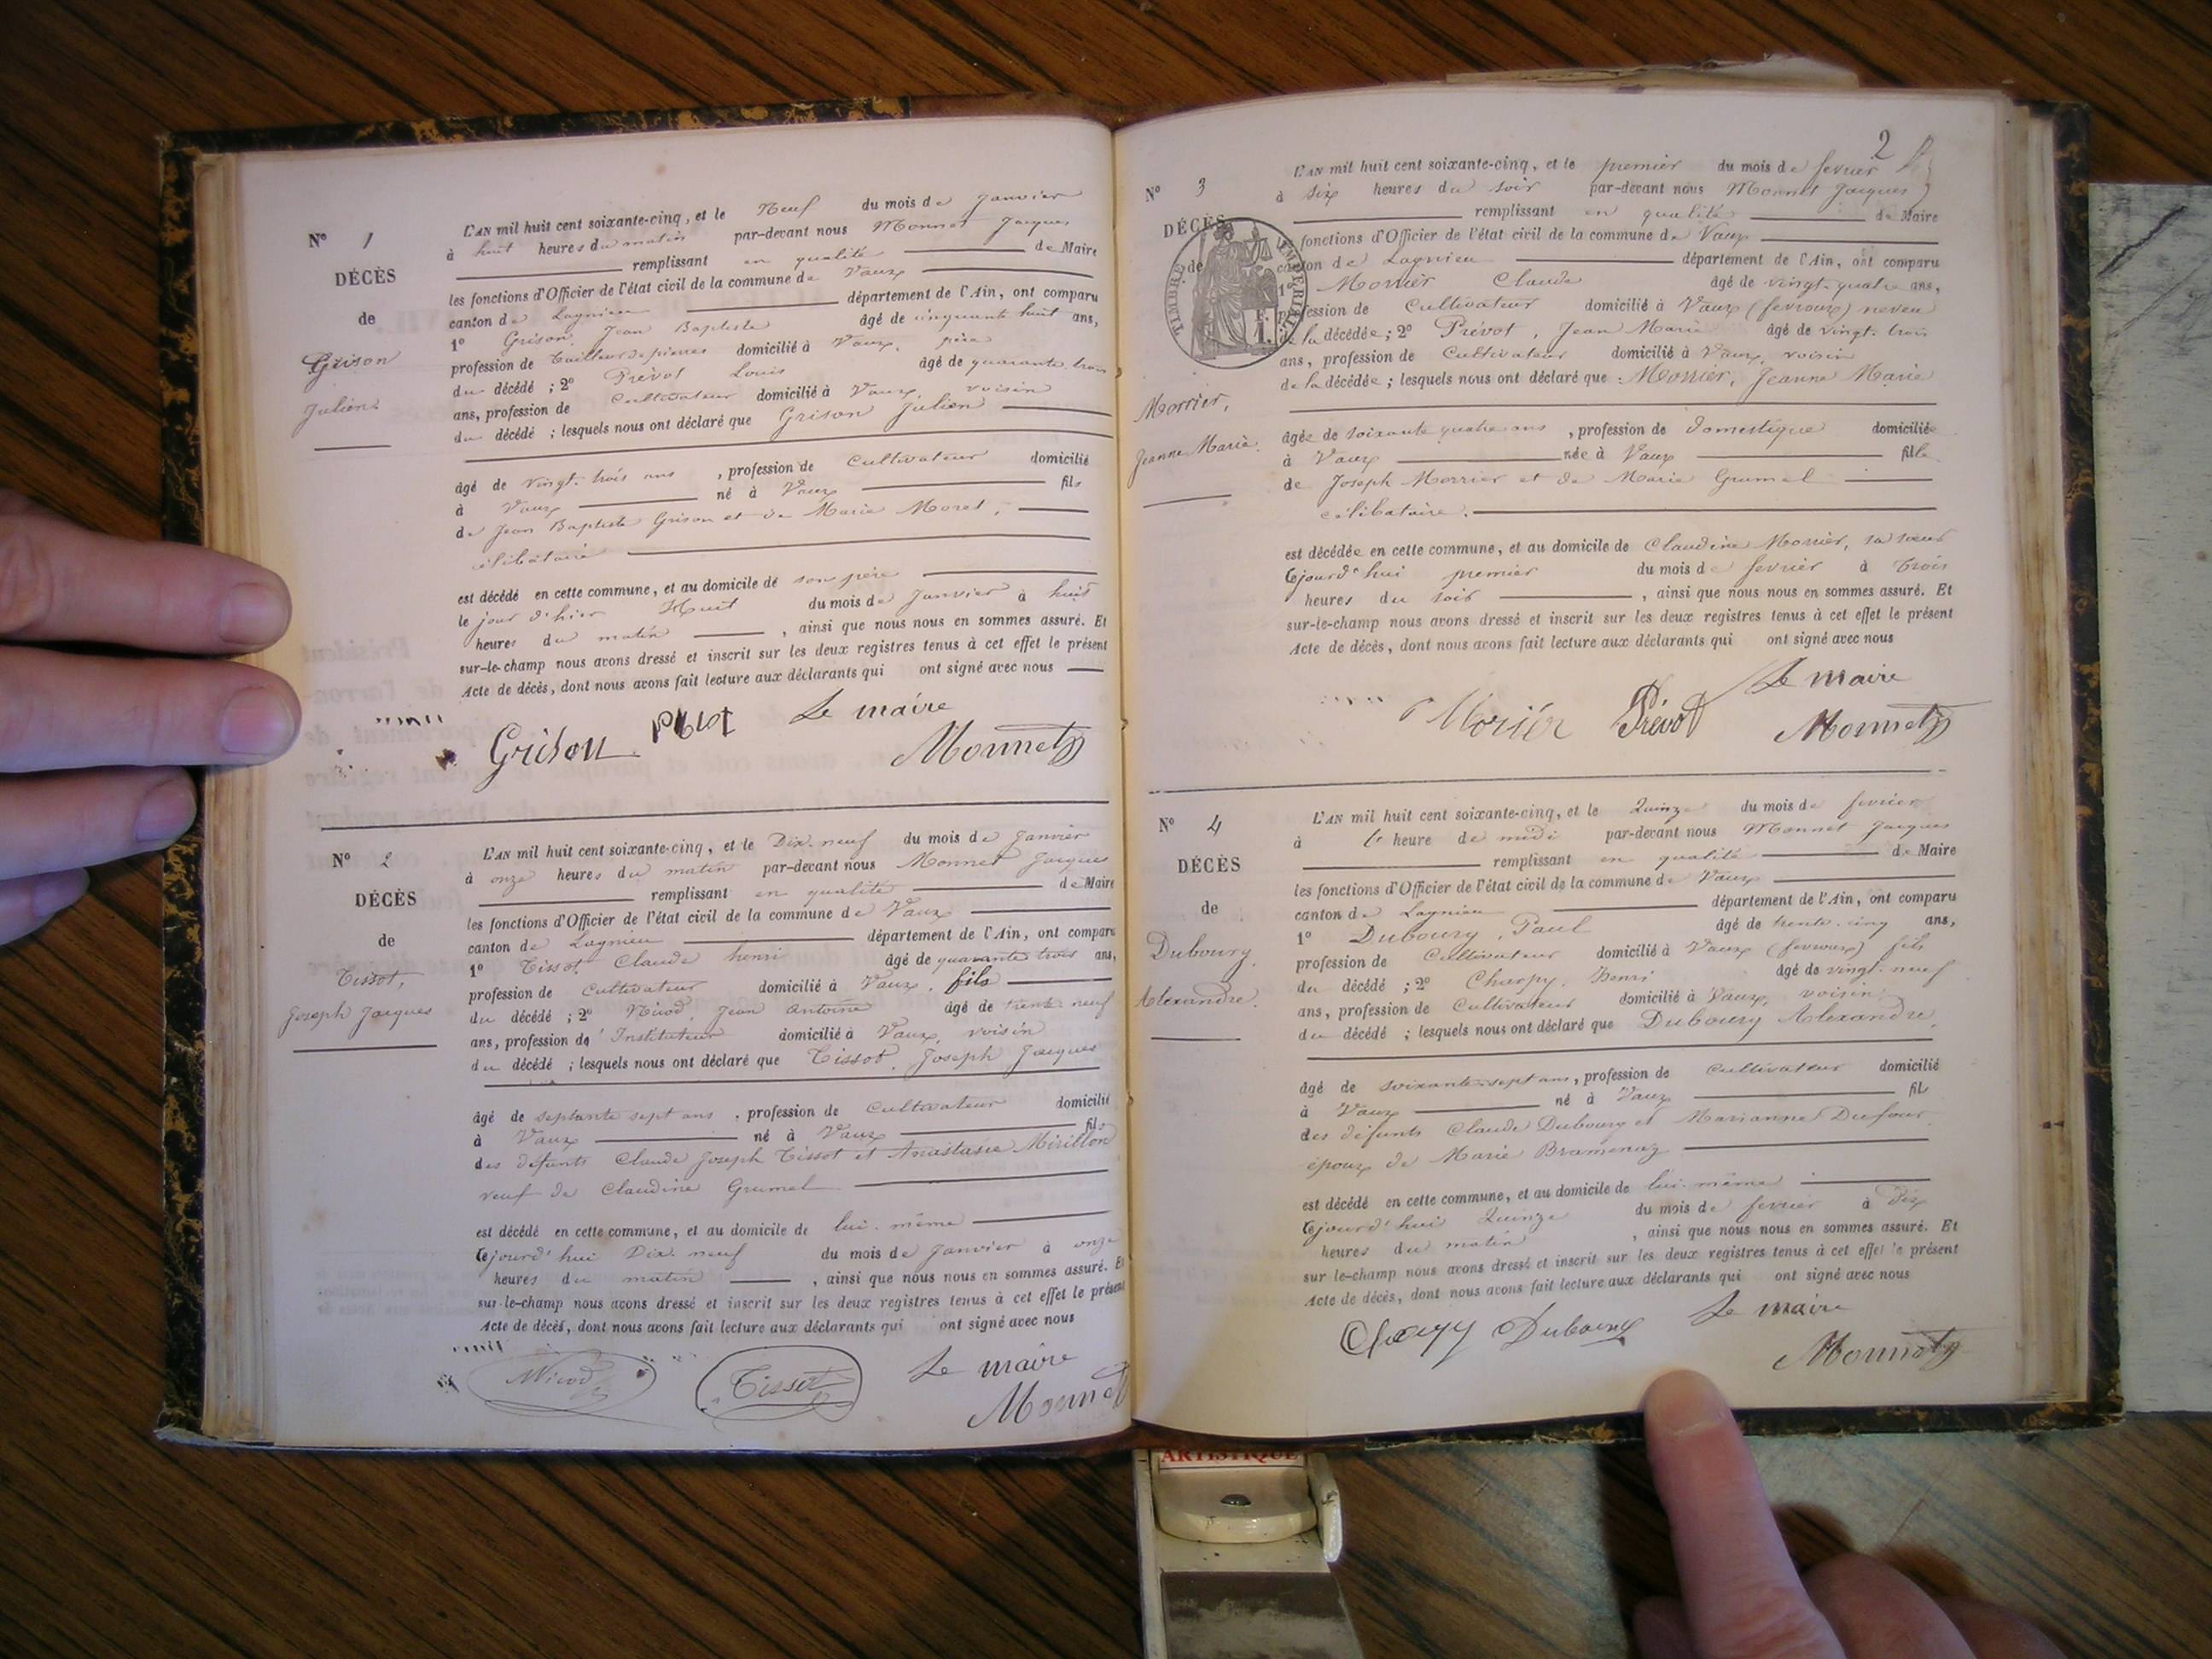 N° 1
DÉCÈS
de
Grison
Julien
L'AN mil huit cent soixante-cinq, et le Neuf du mois de Janvier
à huit heures du matin par-devant nous Monnet Jacques
remplissant en qualité de Maire
les fonctions d'Officier de l'état civil de la commune de Vaux
canton de Lagnieu département de l'Ain, ont comparu
1° Grison, Jean Baptiste âgé de cinquante huit ans,
profession de Tailleur de pierres domicilié à Vaux, père
du décédé ; 2° Prévot Louis âgé de quarante trois
ans, profession de Cultivateur domicilié à Vaux, voisin
du décédé ; lesquels nous ont déclaré que Grison Julien
âgé de vingt-trois ans , profession de Cultivateur domicilié
à Vaux né à Vaux fils
de Jean Baptiste Grison et de Marie Moret,
célibataire
est décédé en cette commune, et au domicile de son père
le jour d'hier Huit du mois de Janvier à huit
heures du matin , ainsi que nous nous en sommes assuré. Et
sur-le-champ nous avons dressé et inscrit sur les deux registres tenus à cet effet le présent
Acte de décès, dont nous avons fait lecture aux déclarants qui ont signé avec nous
Grison Le maire
Monnet
N° 2
DÉCÈS
de
Tissot,
Joseph Jacques
L'AN mil huit cent soixante-cinq, et le Dix-neuf du mois de Janvier
à onze heures du matin par-devant nous Monnet Jacques
remplissant en qualité de Maire
les fonctions d'Officier de l'état civil de la commune de Vaux
canton de Lagnieu département de l'Ain, ont comparu
1° Tissot, Claude henri âgé de quarante trois ans,
profession de Cultivateur domicilié à Vaux, fils
du décédé ; 2° Nicod, Jean Antoine âgé de trente-neuf
ans, profession de Instituteur domicilié à Vaux, voisin
du décédé ; lesquels nous ont déclaré que Tissot, Joseph Jacques
âgé de septante sept ans , profession de Cultivateur domicilié
à Vaux né à Vaux fils
des défunts Claude Joseph Tissot et Anastasie Mirillon
veuf de Claudine Grumel
est décédé en cette commune, et au domicile de lui-même
Cejourd'hui Dix-neuf du mois de Janvier à onze
heures du matin , ainsi que nous nous en sommes assuré. Et
sur-le-champ nous avons dressé et inscrit sur les deux registres tenus à cet effet le présent
Acte de décès, dont nous avons fait lecture aux déclarants qui ont signé avec nous
Nicod Tissot Le maire
Monnet
2
N° 3
DÉCÈS
de
Morrier,
Jeanne Marie
TIMBRE IMPÉRIAL
L'AN mil huit cent soixante-cinq, et le premier du mois de fevrier
à six heures du soir par-devant nous Monnet Jacques
remplissant en qualité de Maire
fonctions d'Officier de l'état civil de la commune de Vaux
canton de Lagnieu département de l'Ain, ont comparu
1° Morrier Claude âgé de vingt-quatre ans,
profession de Cultivateur domicilié à Vaux (fevroux) neveu
de la décédée ; 2° Prévot, Jean Marie âgé de vingt-trois
ans, profession de Cultivateur domicilié à Vaux, voisin
de la décédée ; lesquels nous ont déclaré que Morrier, Jeanne Marie
âgée de soixante quatre ans , profession de domestique domiciliée
à Vaux née à Vaux fille
de Joseph Morrier et de Marie Grumel
célibataire.
est décédée en cette commune, et au domicile de Claudine Morrier, sa sœur
Cejourd'hui premier du mois de fevrier à trois
heures du soir , ainsi que nous nous en sommes assuré. Et
sur-le-champ nous avons dressé et inscrit sur les deux registres tenus à cet effet le présent
Acte de décès, dont nous avons fait lecture aux déclarants qui ont signé avec nous
Morier Prévot Le maire
Monnet
N° 4
DÉCÈS
de
Dubourg,
Alexandre.
L'AN mil huit cent soixante-cinq, et le Quinze du mois de fevrier
à heure de midi par-devant nous Monnet Jacques
remplissant en qualité de Maire
les fonctions d'Officier de l'état civil de la commune de Vaux
canton de Lagnieu département de l'Ain, ont comparu
1° Dubourg, Paul âgé de trente-cinq ans,
profession de Cultivateur domicilié à Vaux (fevroux) fils
du décédé ; 2° Charpy, Henri âgé de vingt-neuf
ans, profession de Cultivateur domicilié à Vaux, voisin
du décédé ; lesquels nous ont déclaré que Dubourg Alexandre,
âgé de soixante-sept ans, profession de Cultivateur domicilié
à Vaux né à Vaux fils
des défunts Claude Dubourg et Marianne Dufour
époux de Marie Bramenaz
est décédé en cette commune, et au domicile de lui-même
Cejourd'hui Quinze du mois de fevrier à Dix
heures du matin , ainsi que nous nous en sommes assuré. Et
sur le-champ nous avons dressé et inscrit sur les deux registres tenus à cet effet le présent
Acte de décès, dont nous avons fait lecture aux déclarants qui ont signé avec nous
Charpy Dubourg Le maire
Monnet
ARTISTIQUE